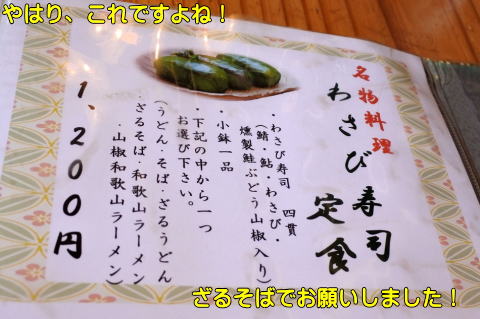 やはり、これですよね！
名物料理
わさび寿司
定食
・わさび寿司 四貫
（鯖・鮎・わさび・
燻製鮭ぶどう山椒入り）
・小鉢一品
・下記の中から一つ
お選び下さい。
（うどん・そば・ざるうどん
・ざるそば・和歌山ラーメン
・山椒和歌山ラーメン）
1、200円
ざるそばでお願いしました！